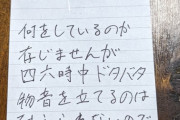 何をしているのか
存じませんが
四六時中ドタバタ
物音を立てるのは